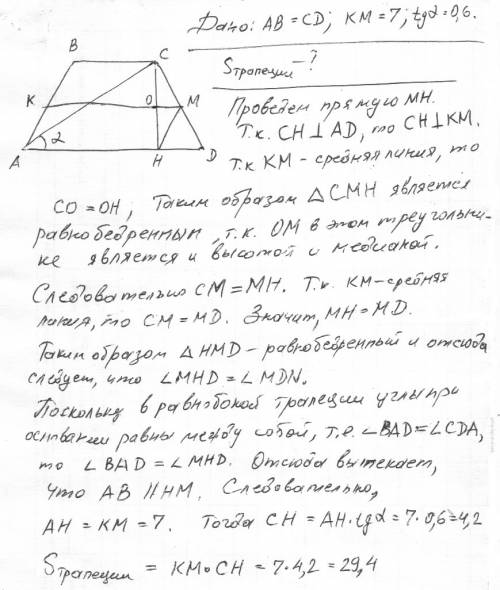 Дано: AB = CD; KM = 7; tgα = 0,6.
B
C
Sтрапеции - ?
K
O
M
α
A
H
D
Проведем прямую MH.
Т.к. CH ⊥ AD, то CH ⊥ KM.
Т.к KM - средняя линия, то
CO = OH; Таким образом △CMH является
равнобедренным, т.к. OM в этом треугольни-
ке является и высотой и медианой.
Следовательно CM = MH. Т.к. KM - средняя
линия, то CM = MD. Значит, MH = MD.
Таким образом △HMD - равнобедренный и отсюда
следует, что ∠MHD = ∠MDN.
Поскольку в равнобокой трапеции углы при
основании равны между собой, т.е. ∠BAD = ∠CDA,
то ∠BAD = ∠MHD. Отсюда вытекает,
что AB || HM. Следовательно,
AH = KM = 7. Тогда CH = AH·tgα = 7·0,6 = 4,2
Sтрапеции = KM·CH = 7·4,2 = 29,4